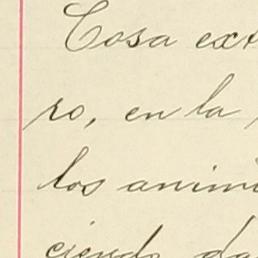 Cosa ext
ro, en la
los anim
ciendo da